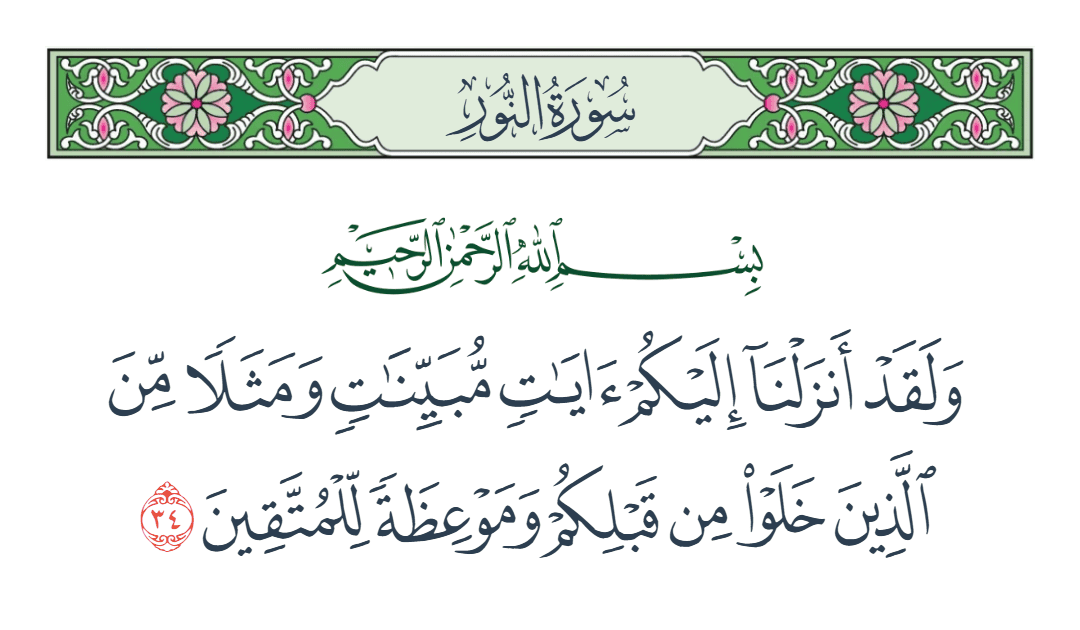 سُورَةُ النُّورِ
بِسْمِ ٱللَّهِ ٱلرَّحْمَٰنِ ٱلرَّحِيمِ
وَلَقَدْ أَنزَلْنَآ إِلَيْكُمْ ءَايَٰتٍ مُّبَيِّنَٰتٍ وَمَثَلًا مِّنَ
ٱلَّذِينَ خَلَوْا۟ مِن قَبْلِكُمْ وَمَوْعِظَةً لِّلْمُتَّقِينَ ٣٤